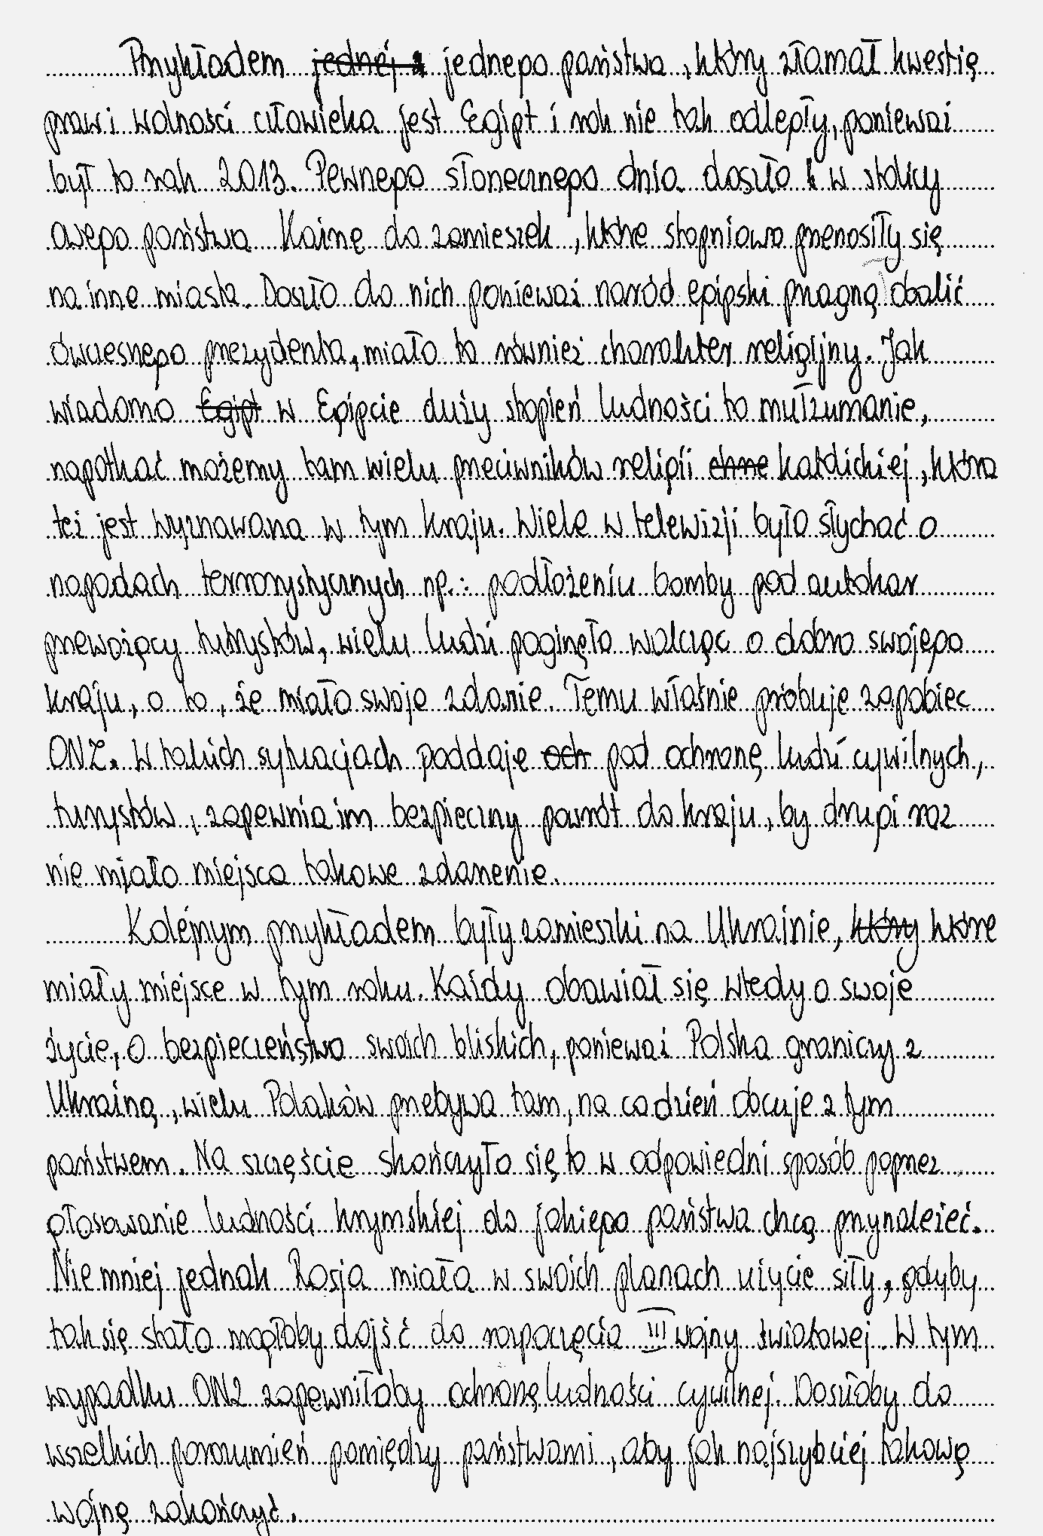 Przykładem jednej z jednego państwa, który złamał kwestię
praw i wolności człowieka jest Egipt i rok nie tak odległy, ponieważ
był to rok 2013. Pewnego słonecznego dnia doszło w stolicy
owego państwa Kairze do zamieszek, które stopniowo przenosiły się
na inne miasta. Doszło do nich ponieważ naród egipski pragną obalić
ówczesnego prezydenta, miało to również charakter religijny. Jak
wiadomo Egipt w Egipcie duży stopień ludności to mułzumanie,
napotkać możemy tam wielu przeciwników religii chrze katolickiej, która
też jest wyznawana w tym kraju. Wiele w telewizji było słychać o
napadach terrorystycznych np.: podłożeniu bomby pod autokar
przewożący turystów, wielu ludzi poginęło walcząc o dobro swojego
kraju, o to, że miało swoje zdanie. Temu właśnie próbuje zapobiec
ONZ. W takich sytuacjach poddaje och pod ochronę ludzi cywilnych,
turystów, zapewnia im bezpieczny powrót do kraju, by drugi raz
nie miało miejsca takowe zdarzenie.
Kolejnym przykładem były zamieszki na Ukrainie, który które
miały miejsce w tym roku. Każdy obawiał się wtedy o swoje
życie, o bezpieczeństwo swoich bliskich, ponieważ Polska graniczy z
Ukrainą, wielu Polaków przebywa tam, na co dzień obcuje z tym
państwem. Na szczęście skończyło się to w odpowiedni sposób poprzez
głosowanie ludności krymskiej do jakiego państwa chcą przynależeć.
Nie mniej jednak Rosja miała w swoich planach użycie siły, gdyby
tak się stało mogłoby dojść do rozpoczęcia III wojny światowej. W tym
wypadku ONZ zapewniłoby ochronę ludności cywilnej. Doszłoby do
wszelkich porozumień pomiędzy państwami, aby jak najszybciej takową
wojnę zakończyć.